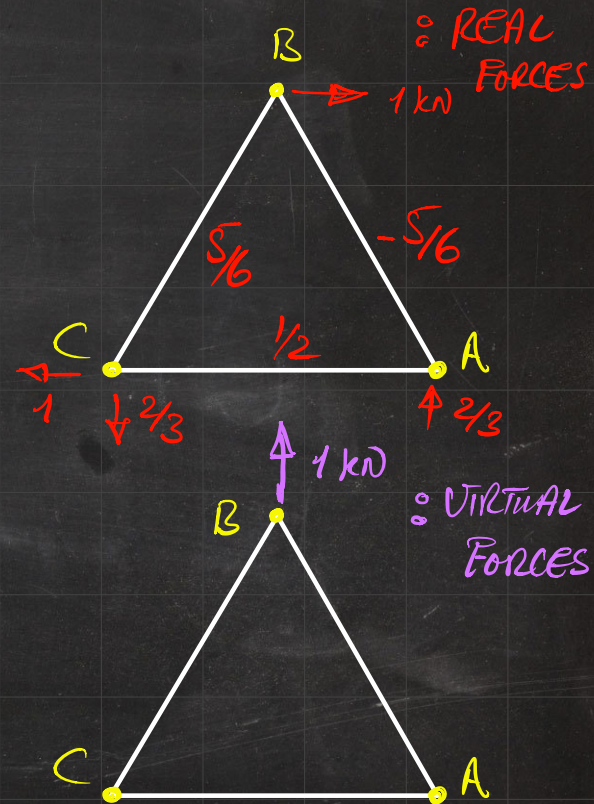 B
: REAL
FORCES
1 kN
5/6
-5/6
C
1/2
A
1
2/3
2/3
1 kN
B
: VIRTUAL
FORCES
C
A